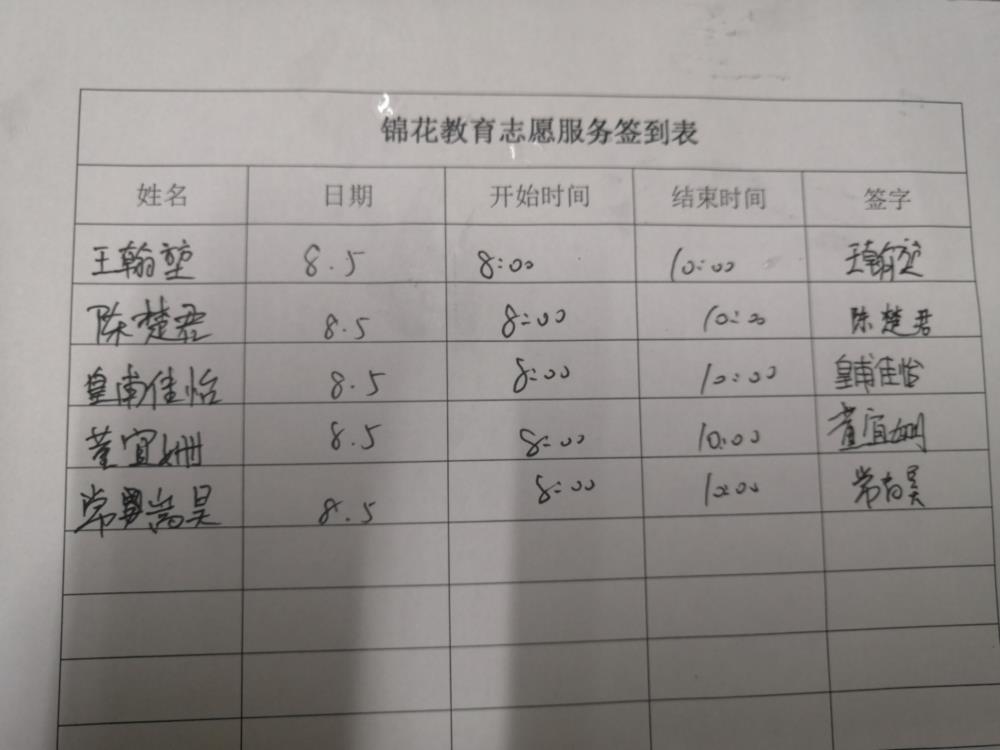 锦花教育志愿服务签到表
姓名 日期 开始时间 结束时间 签字
王翰堃 8.5 8:00 10:00 王翰堃
陈楚君 8.5 8:00 10:00 陈楚君
皇甫佳怡 8.5 8:00 10:00 皇甫佳怡
董宜姗 8.5 8:00 10:00 董宜姗
常嵩昊 8.5 8:00 10:00 常嵩昊